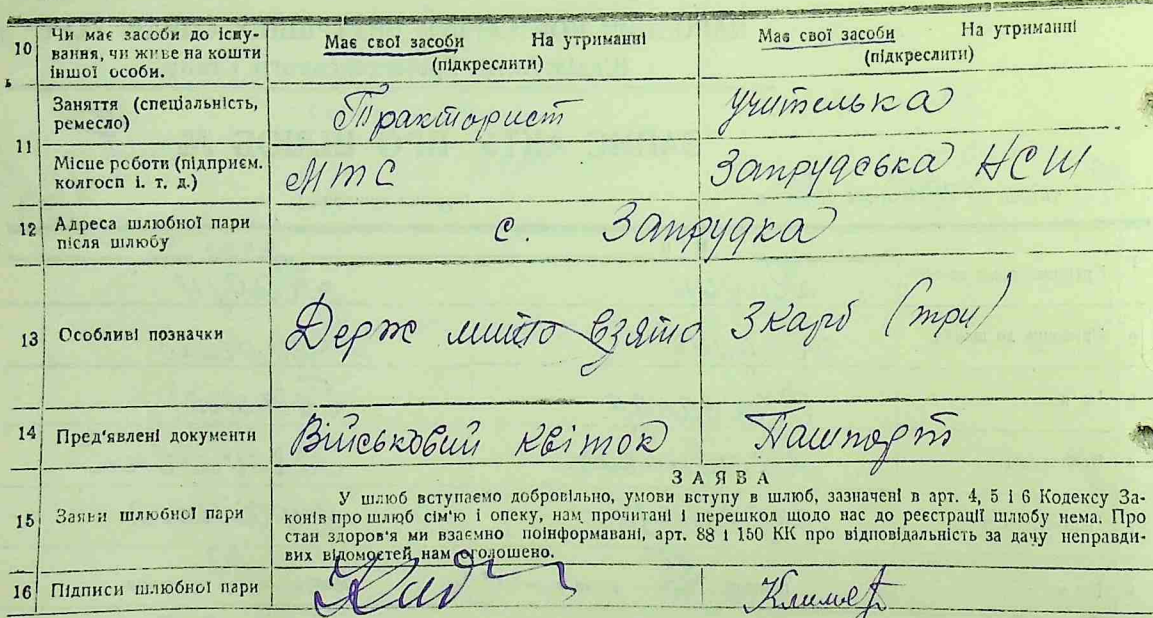 10 Чи має засоби до існування, чи живе на кошти іншої особи. Має свої засоби На утриманні (підкреслити) Має свої засоби На утриманні (підкреслити)
11 Заняття (спеціальність, ремесло) Тракторист учителька
Місце роботи (підприєм. колгосп і. т. д.) МТС Запрудська НСШ
12 Адреса шлюбної пари після шлюбу с. Запрудка
13 Особливі позначки Держ мито взято 3 карб (три)
14 Пред'явлені документи Військовий квіток Пашпорт
ЗАЯВА
15 Заяви шлюбної пари У шлюб вступаємо добровільно, умови вступу в шлюб, зазначені в арт. 4, 5 і 6 Кодексу За-
конів про шлюб сім'ю і опеку, нам прочитані і перешкод щодо нас до реєстрації шлюбу нема. Про
стан здоров'я ми взаємно поінформавані, арт. 88 і 150 КК про відповідальність за дачу неправди-
вих відомостей нам оголошено.
16 Підписи шлюбної пари